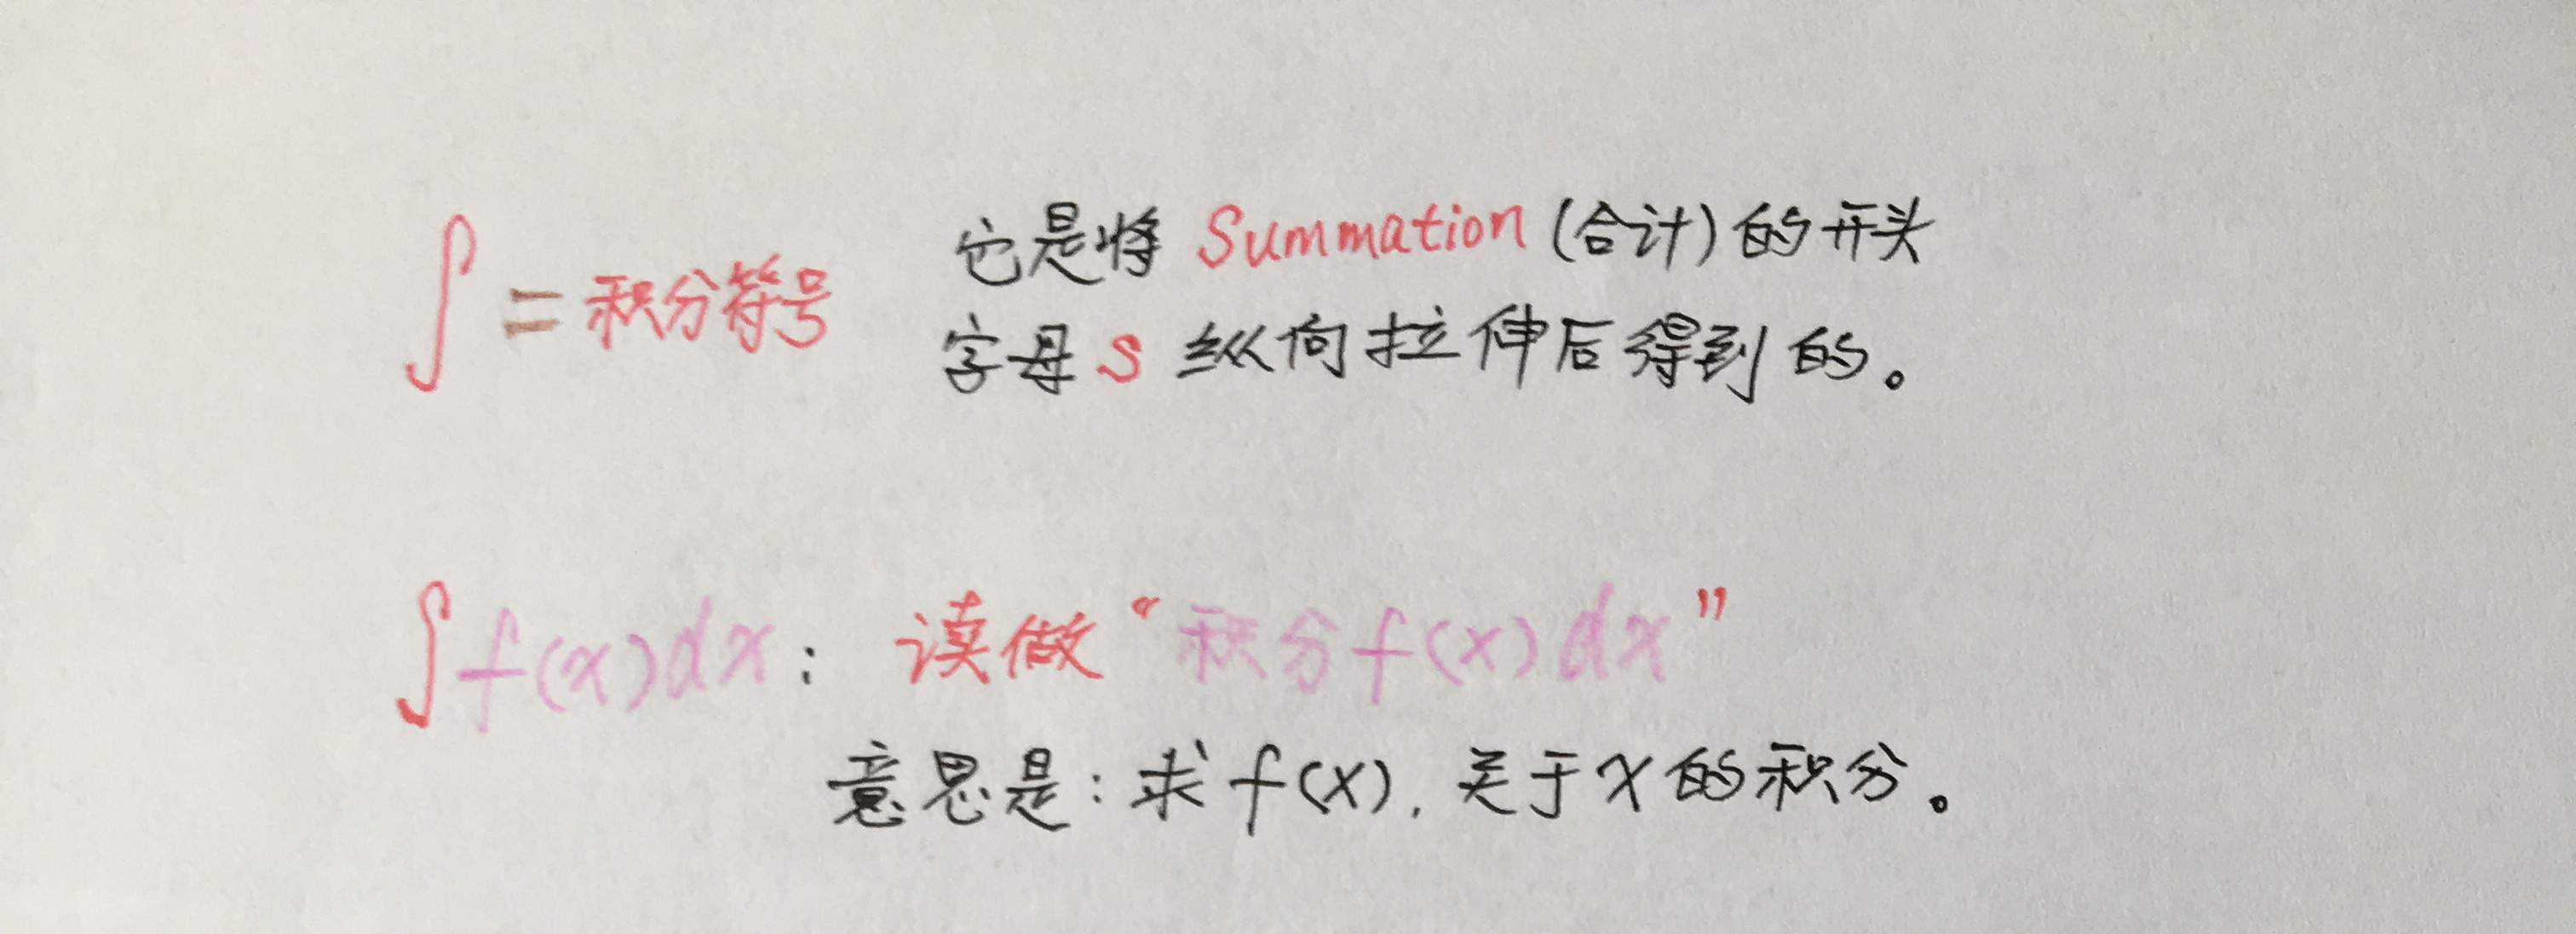 ∫ = 积分符号
它是将 Summation (合计) 的开头
字母 S 纵向拉伸后得到的。
∫f(x)dx: 读做“积分f(x)dx”
意思是:求f(x), 关于x的积分。